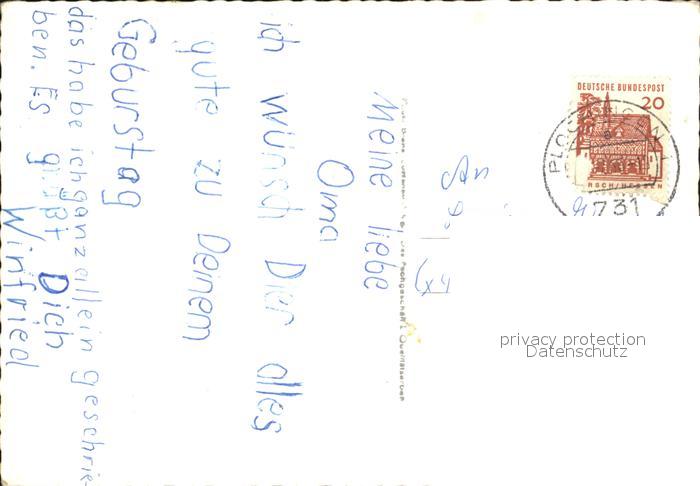 meine liebe
Oma
ich wünsch Dier alles
gute zu Deinem
Geburstag
das habe ich ganz allein geschrie-
ben. Es grüßt Dich
Winfried
An
DEUTSCHE BUNDESPOST
20
RSCH/HESSEN
731
privacy protection
Datenschutz